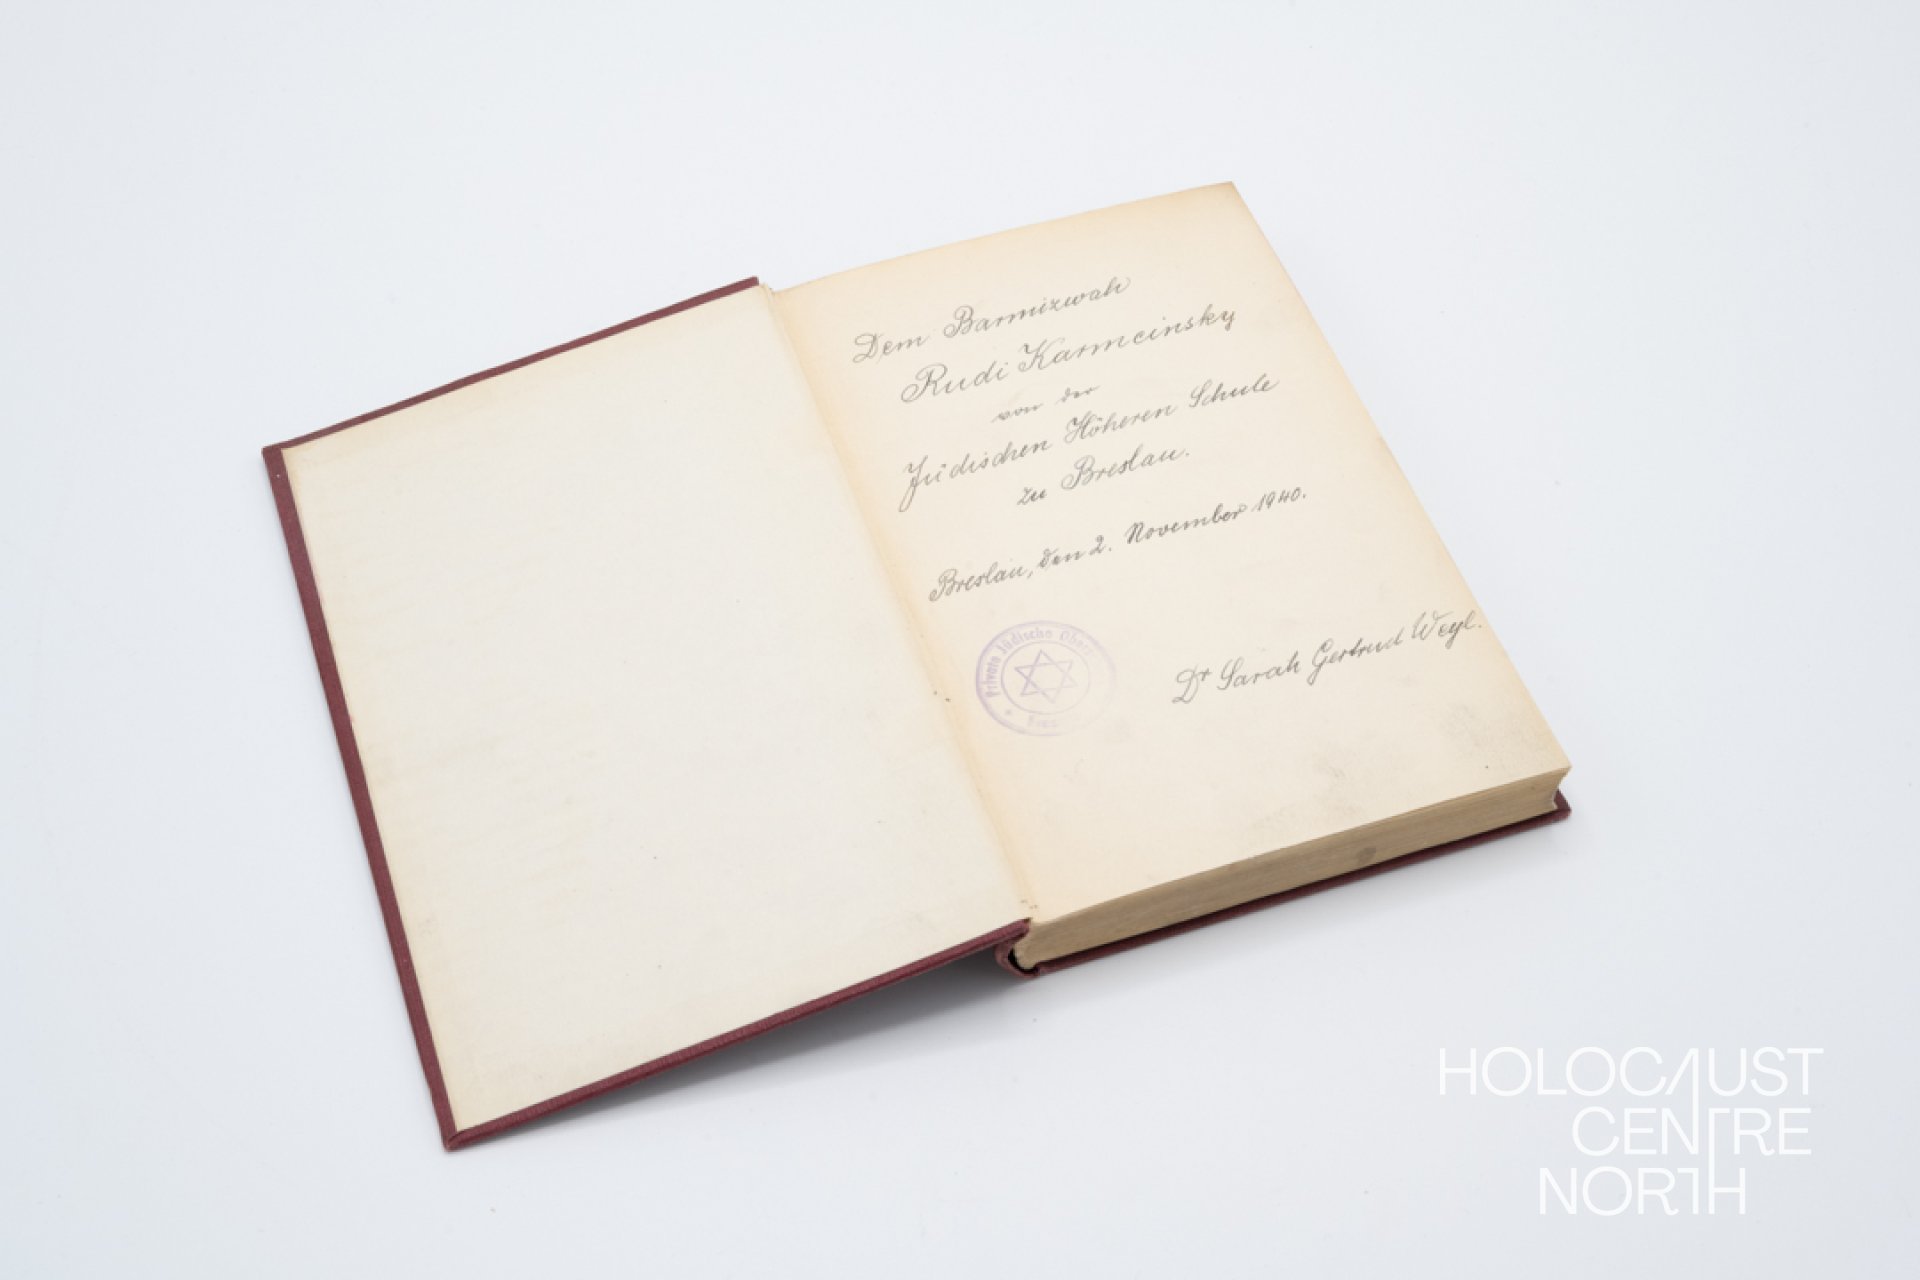 Dem Barmizwah
Rudi Karmeinsky
von der
Jüdischen Höheren Schule
zu Breslau.
Breslau, den 2. November 1940.
Private Jüdische
Dr Sarah Gertrud Weyl.
HOLOCAUST
CENTRE
NORTH